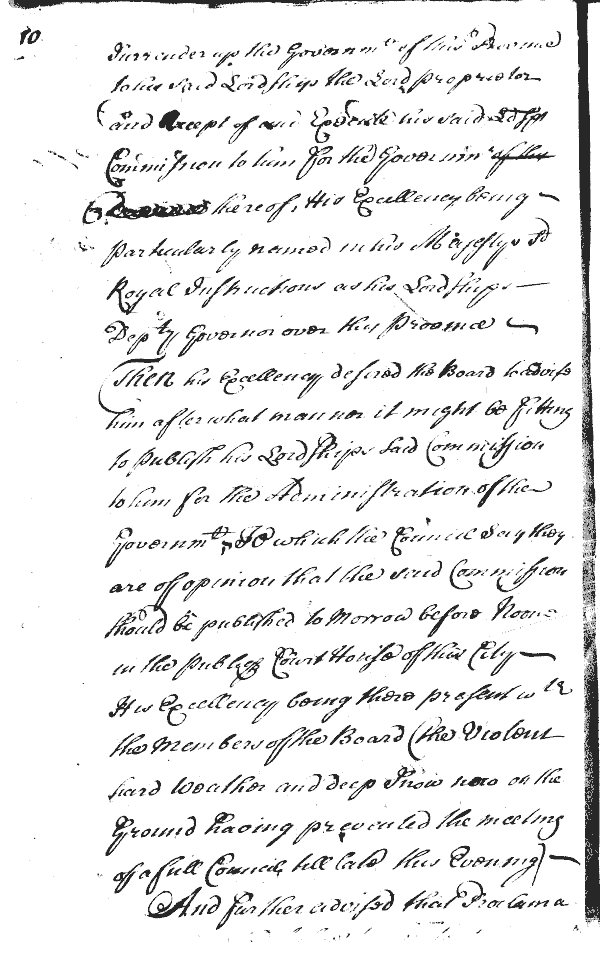 10
Surrender up the Governmt. of this Province
to his said Lordship the Lord proprietor
and Accept of and Execute his said Ldspp
Commission to him for the Governmt of the
thereof, His Excellency being
particularly named in his Majestys sd
Royal Instructions as his Lordships
Depty Governor over this Province
Then his Excellency desired the Board to advise
him after what manner it might be fitting
to publish his Lordships said Commission
to him for the Administration of the
Governmt, To which the Council say they
are of opinion that the said Commission
should be published to Morrow before Noone
in the Publq Court House of this City
His Excellency being there present with
the Members of the Board (the Violent
hard Weather and deep Snow now on the
Ground having prevented the meeting
of a full Council, till late this Evening)
And further advised that Proclama